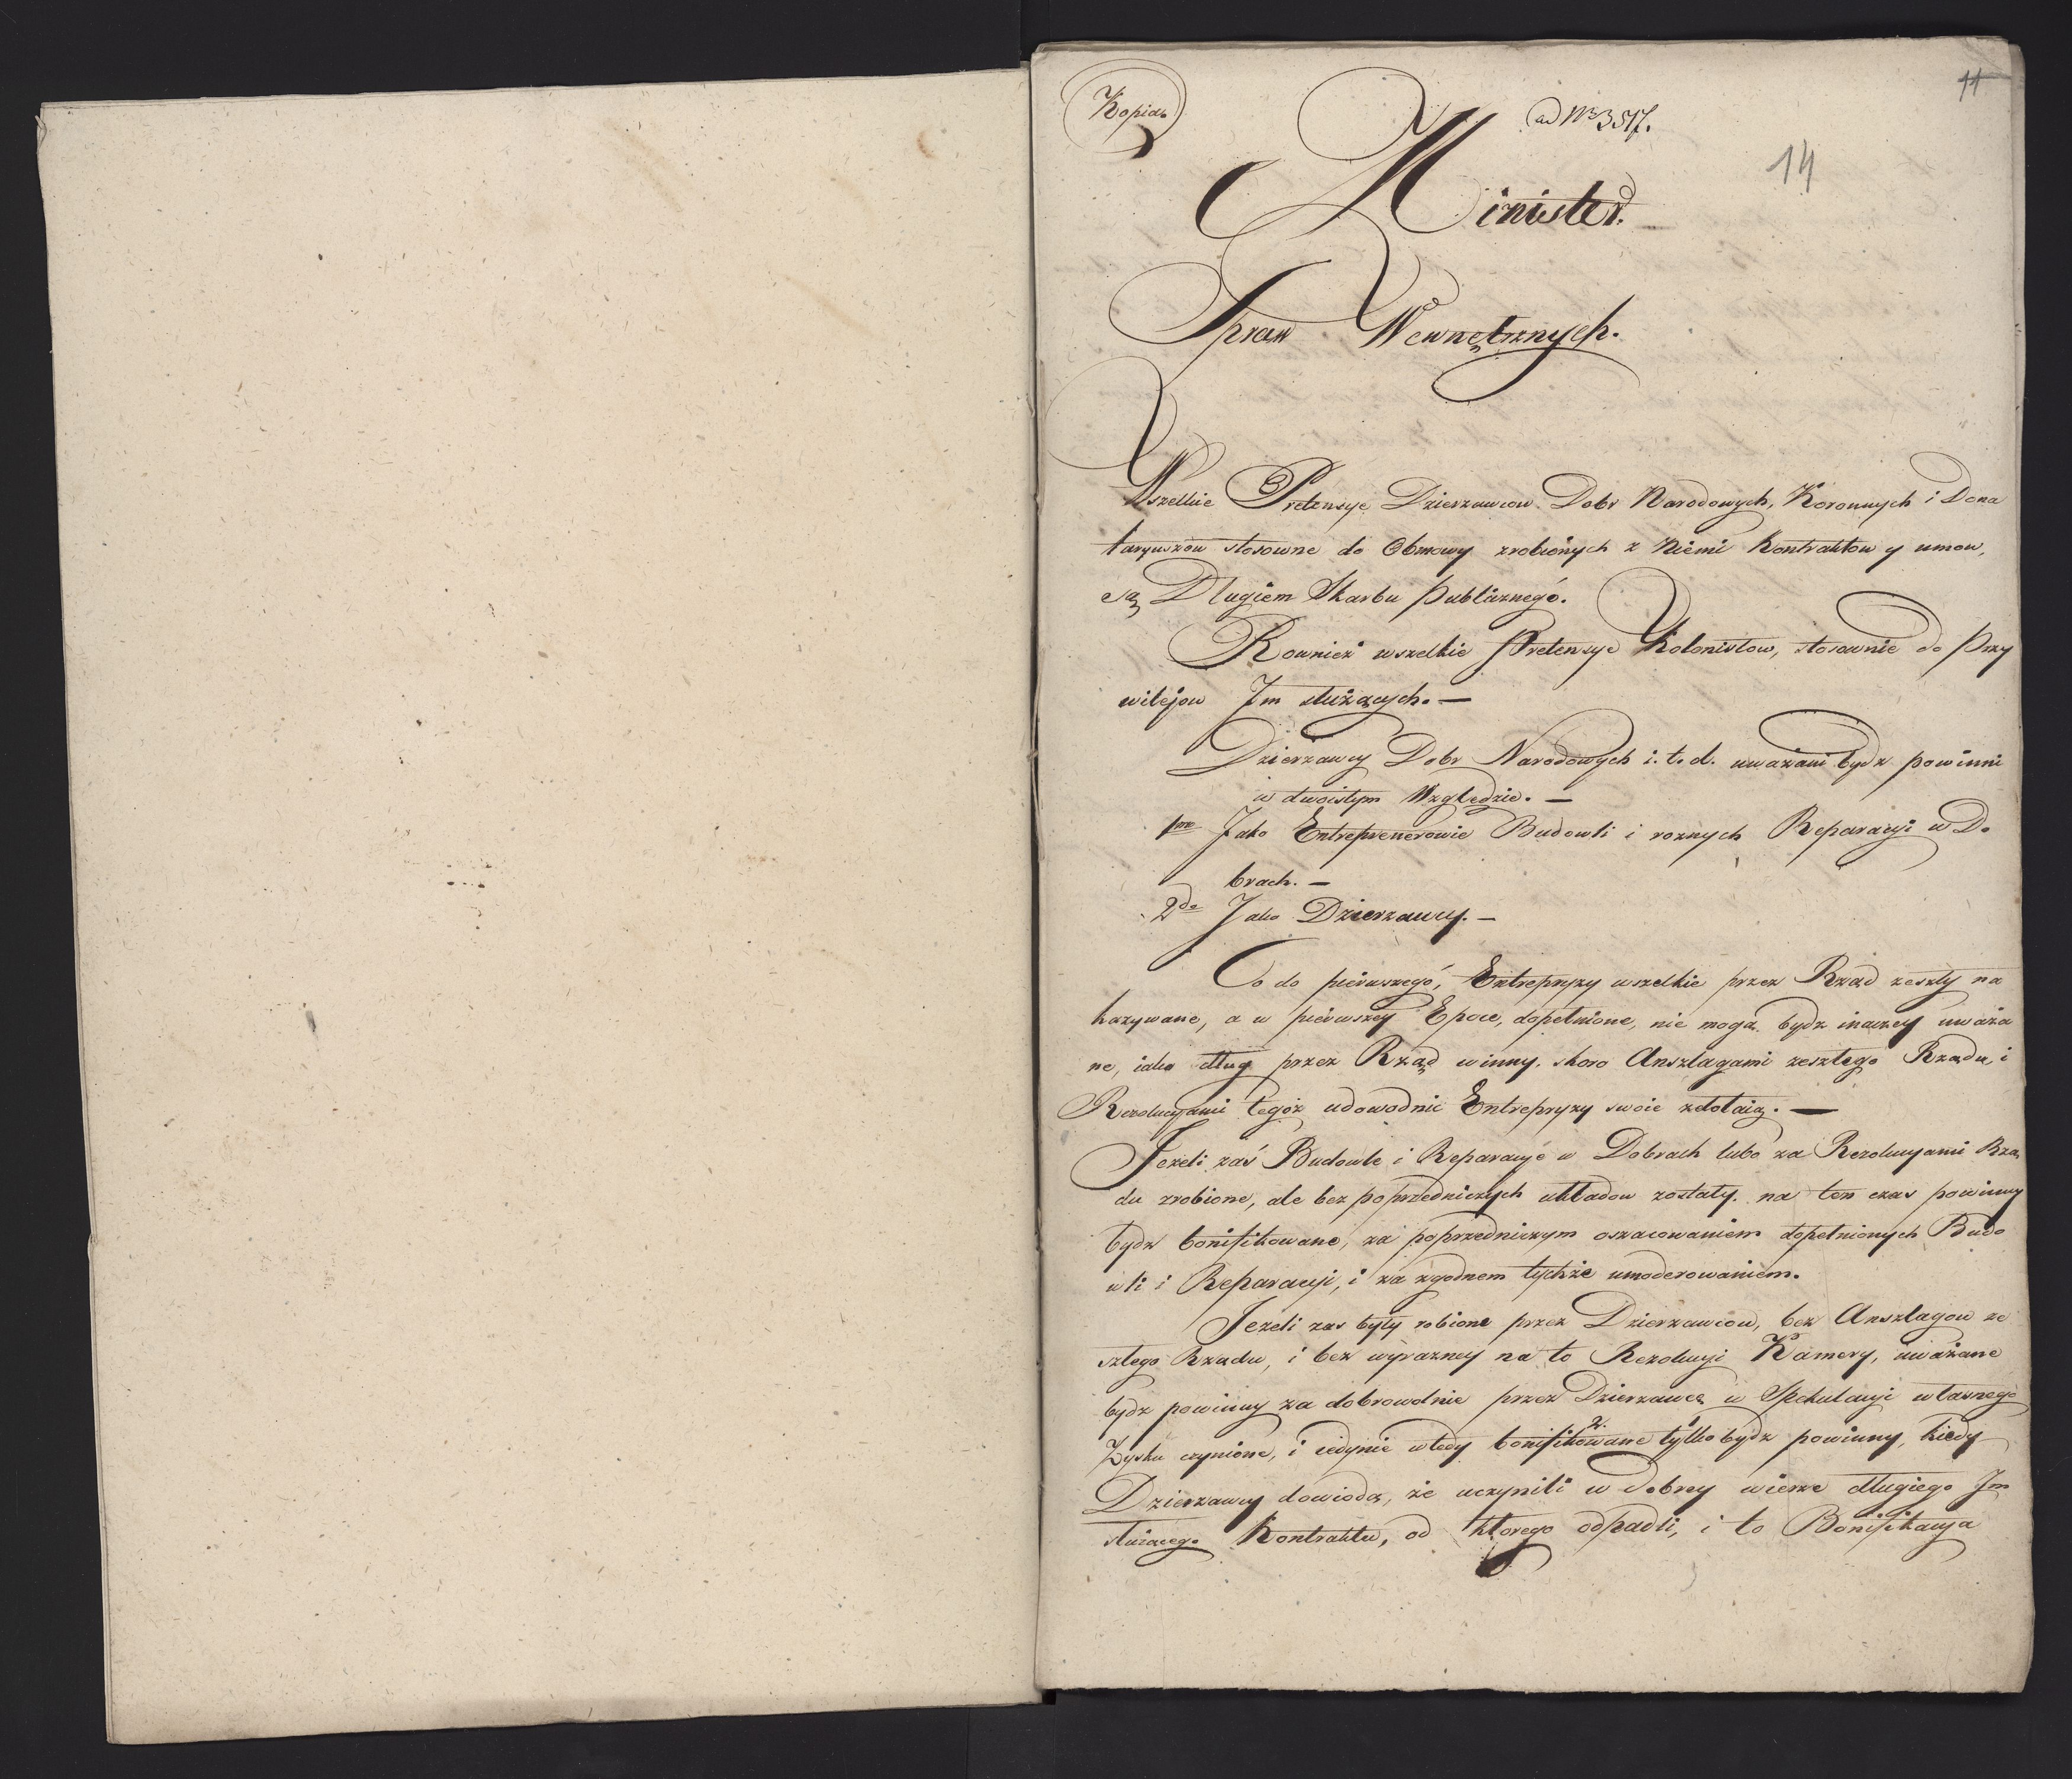 Kopia.
ad Nro 3517.
11
14
Minister
Spraw Wewnętrznych.
Wszelkie Pretensye Dzierzawcow Dobr Narodowych, Koronnych i Dona
taryuszow stosowne do Obmowy zrobionych z Niemi Kontraktow y umow,
są Długiem Skarbu Publicznegó.
Rownież wszelkie Pretensye Kolonistow, stosownie do Przy
wilejow Im służących. —
Dzierzawcy Dobr Narodowych i. t. d. uważani bydz powinni
w dwoistym Względzie. —
1mo Jako Entreprenerowie Budowli i roznych Reparacyi w Do
brach. —
2do Jako Dzierzawcy. —
Co do pierwszegó, Entrepryzy wszelkie przez Rząd zeszły na
kazywane, a w pierwszey Epoce, dopełnione, nie mogą bydz inaczey uważa
ne, iako dług przez Rząd winny. skoro Anszlagami zeszłego Rządu, i
Rezolucyami tegóż udowodnić Entrepryzy swoie zdołaią. —
Jezeli zaś Budowle i Reparacye w Dobrach lubo za Rezolucyami Rzą
du zrobione, ale bez poprzedniczych układow zostały. na ten czas powinny
bydz bonifikowane, za poprzedniczym oszacowaniem dopełnionych Budo
wli i Reparacyi, i za zgodnem tychże umoderowaniem.
Jezeli zas były robione przez Dzierzawcow, bez Anszlagow ze
szłego Rządu, i bez wyrazney na to Rezolucyi Kamery, uważane
bydz powinny za dobrowolnie przez Dzierzawcę w Spekulacyi własnego
Zysku czynione, i iedynie wtedy bonifikowane tylko bydz powinny, kiedy
2. 1
Dzierzawcy dowiodą, że uczynili w dobrey wierze długiego Im
służącego Kontraktu, od ktorego odpadli, i to Bonifikacya